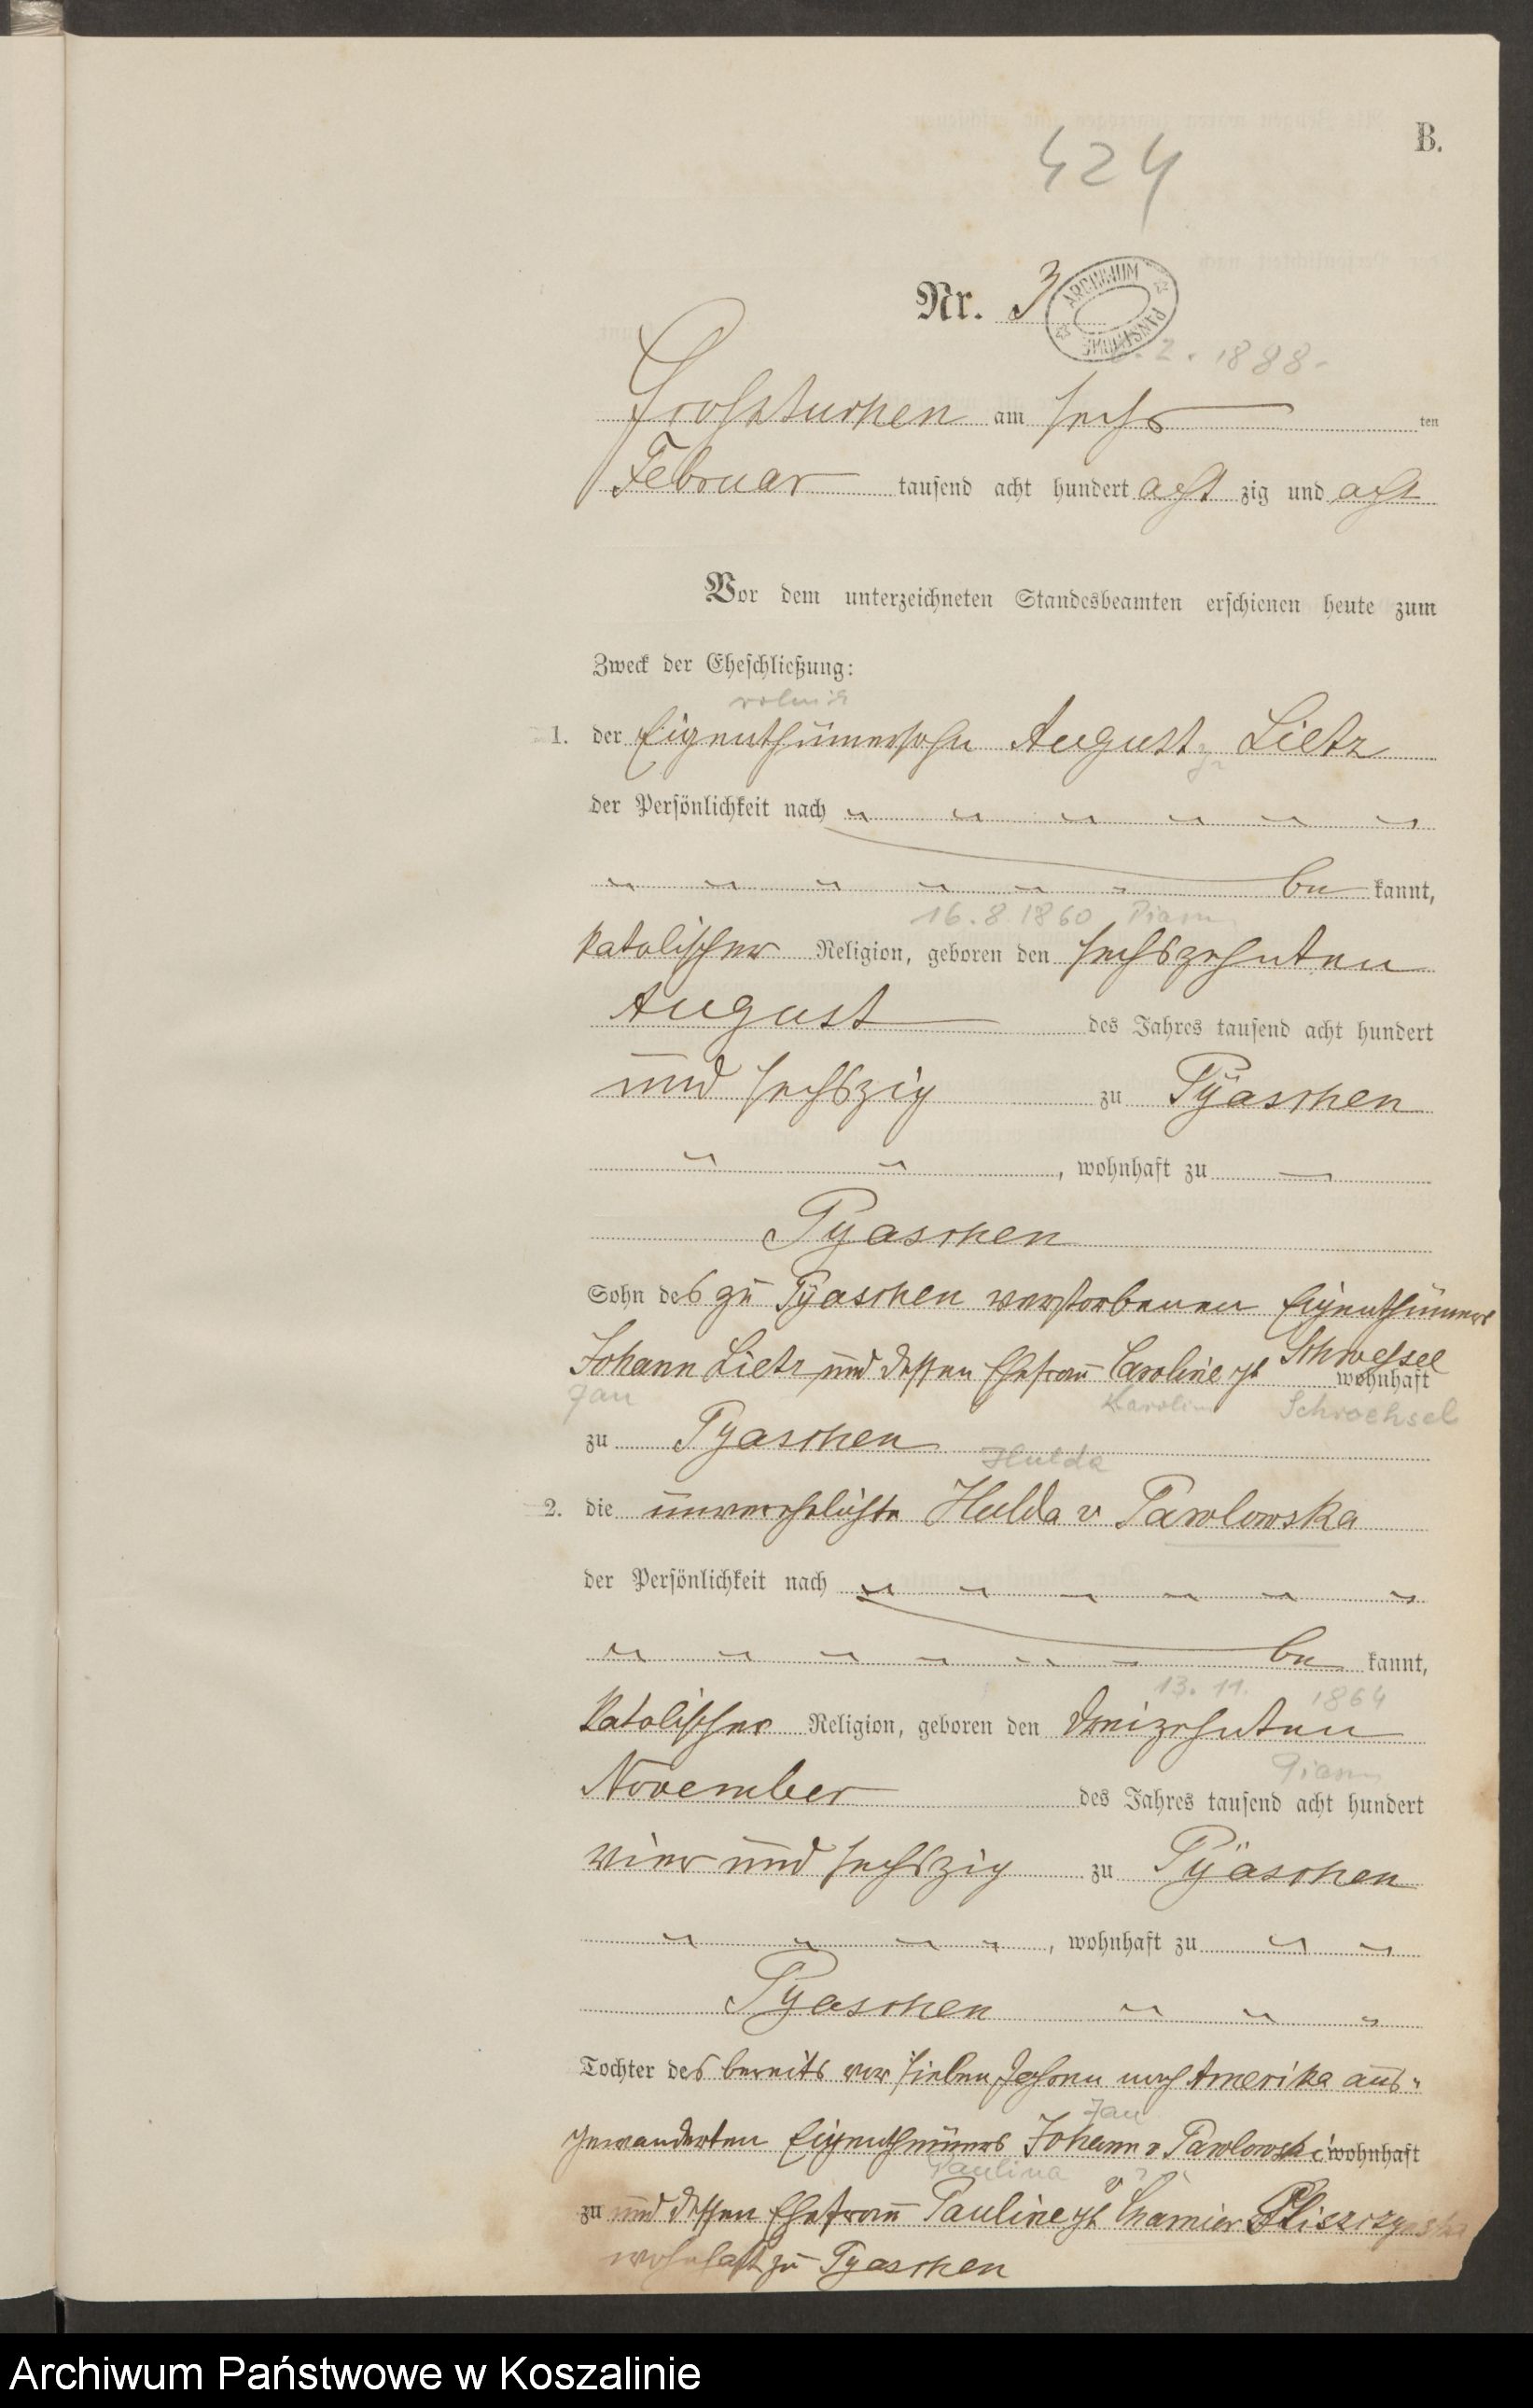 B.
424
Nr. 3
ARCHIWUM PAŃSTWOWE
2. 1888.
Groß Tuchen am sechs ten
Februar tausend acht hundert acht zig und acht
Vor dem unterzeichneten Standesbeamten erschienen heute zum
Zweck der Eheschließung:
rolnik
1. der Eigenthümersohn August Lietz
der Persönlichkeit nach
be kannt,
16.8.1860
katolischer Religion, geboren den sechszehnten
August des Jahres tausend acht hundert
und sechszig zu Pyaschen
, wohnhaft zu
Pyaschen
Sohn des zu Pyaschen verstorbenen Eigenthümers
Johann Lietz und dessen Ehefrau Caroline gb Schwessel wohnhaft
Jan Karolina Schroehsel
zu Pyaschen
Hulda
2. die unverehelichte Hulda v Pawlowska
der Persönlichkeit nach
be kannt,
13. 11. 1864
katolischer Religion, geboren den dreizehnten
November des Jahres tausend acht hundert
vier und sechszig zu Pyaschen
, wohnhaft zu
Pyaschen
Tochter des bereits vor sieben Jahren nach Amerika aus-
Jan
gewanderten Eigenthümers Johann v Pawlowski wohnhaft
Paulina
zu und dessen Ehefrau Pauline gb v Chamier
wohnhaft zu Pyaschen
Archiwum Państwowe w Koszalinie